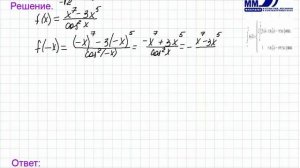 Решение.
f(x) = \frac{x^7 - 3x^5}{\cos^2 x}
f(-x) = \frac{(-x)^7 - 3(-x)^5}{\cos^2(-x)} = \frac{-x^7 + 3x^5}{\cos^2 x} = - \frac{x^7 - 3x^5}{}
MM
Ответ: